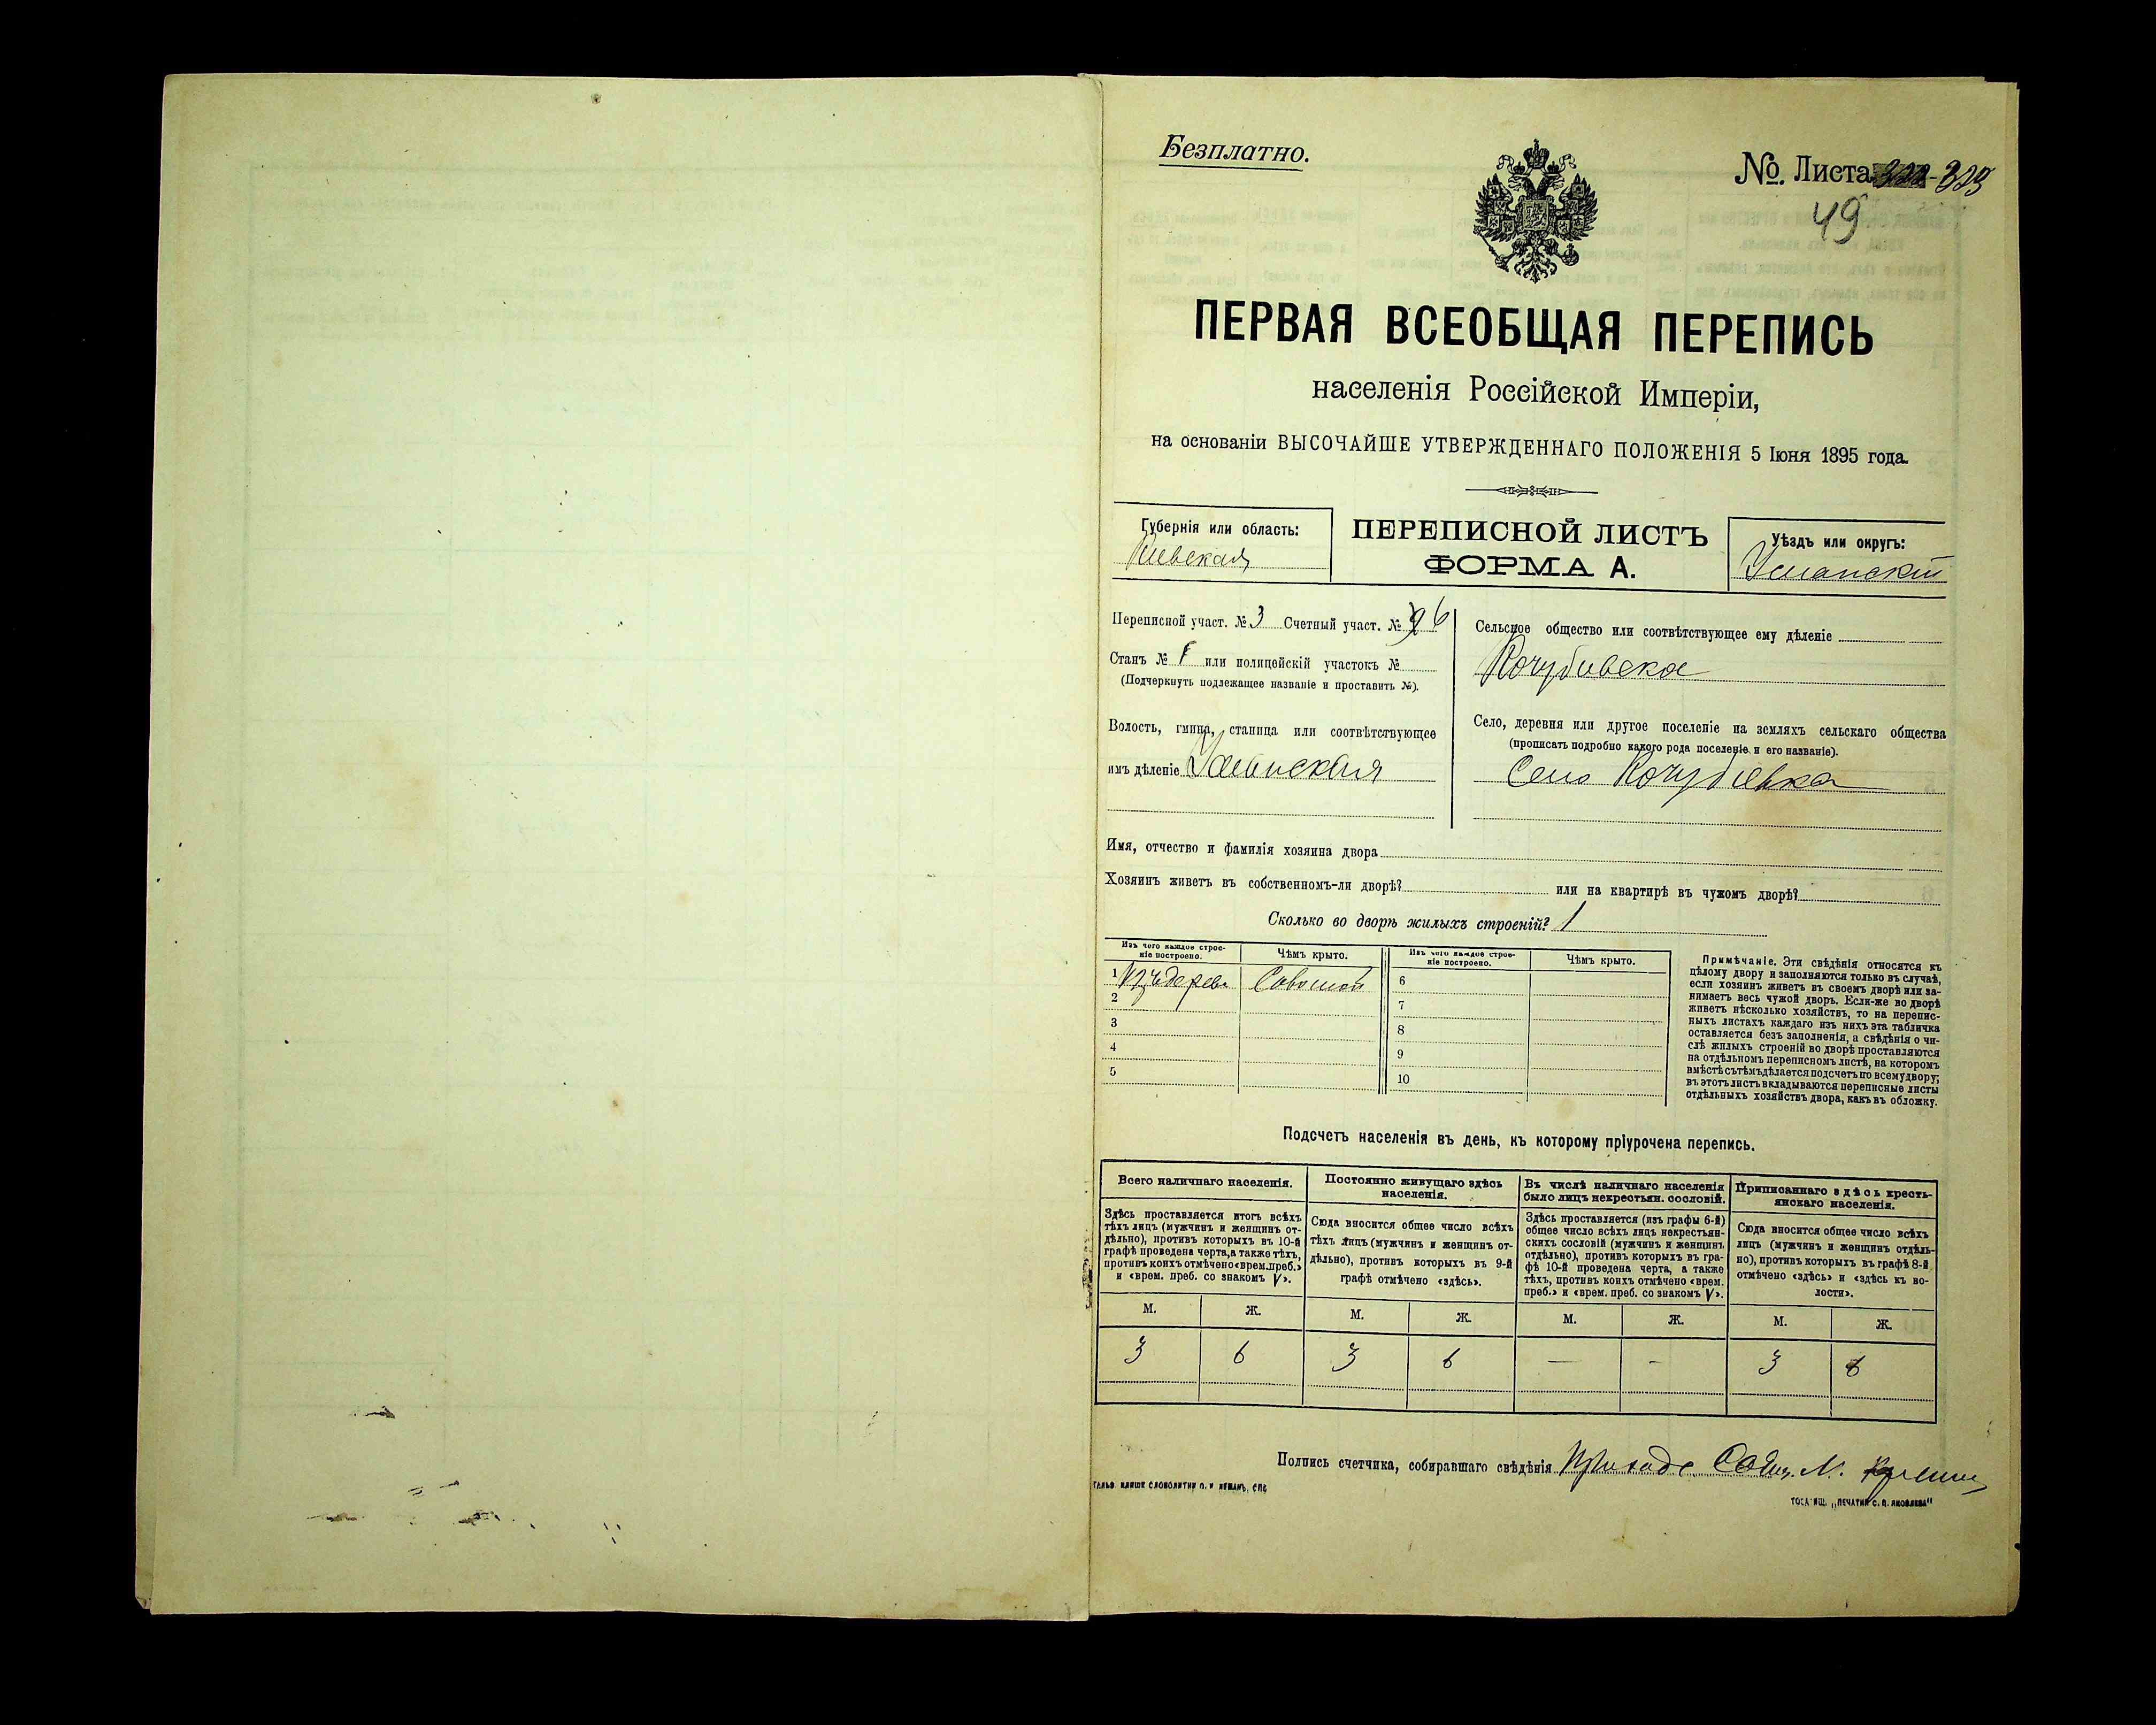 Безплатно.
№ Листа 323
49
ПЕРВАЯ ВСЕОБЩАЯ ПЕРЕПИСЬ
населенія Россійской Имперіи,
на основаніи ВЫСОЧАЙШЕ УТВЕРЖДЕННАГО ПОЛОЖЕНІЯ 5 Іюня 1895 года.
Губернія или область:
Киевская
ПЕРЕПИСНОЙ ЛИСТЪ
ФОРМА А.
Уѣздъ или округъ:
Уманский
Переписной участ. № 3 Счетный участ. № 6
Станъ № или полицейскій участокъ №
(Подчеркнуть подлежащее названіе и проставить №).
Волость, гмина, станица или соотвѣтствующее
имъ дѣленіе
Сельское общество или соотвѣтствующее ему дѣленіе
Кочубивска
Село, деревня или другое поселеніе на земляхъ сельскаго общества
(прописать подробно какого рода поселеніе и его названіе).
Село Кочубиевка
Имя, отчество и фамилія хозяина двора
Хозяинъ живетъ въ собственномъ-ли дворѣ? или на квартирѣ въ чужомъ дворѣ?
Сколько во дворѣ жилыхъ строеній? 1
Изъ чего каждое строе-
ніе построено.
Чѣмъ крыто.
Изъ чего каждое строе-
ніе построено.
Чѣмъ крыто.
1 Изъ дерева
6
2
7
3
8
4
9
5
10
Примѣчаніе. Эти свѣдѣнія относятся къ
цѣлому двору и заполняются только въ случаѣ,
если хозяинъ живетъ въ своемъ дворѣ или за-
нимаетъ весь чужой дворъ. Если-же во дворѣ
живетъ нѣсколько хозяйствъ, то на перепис-
ныхъ листахъ каждаго изъ нихъ эта табличка
оставляется безъ заполненія, а свѣдѣнія о чи-
слѣ жилыхъ строеній во дворѣ проставляются
на отдѣльномъ переписномъ листѣ, на которомъ
вмѣстѣ съ тѣмъ дѣлается подсчетъ по всему двору;
въ этотъ листъ вкладываются переписные листы
отдѣльныхъ хозяйствъ двора, какъ въ обложку.
Подсчетъ населенія въ день, къ которому пріурочена перепись.
Всего наличнаго населенія.
Постоянно живущаго здѣсь
населенія.
Въ числѣ наличнаго населенія
было лицъ некрестьян. сословій.
Приписаннаго здѣсь кресть-
янскаго населенія.
Здѣсь проставляется итогъ всѣхъ
тѣхъ лицъ (мужчинъ и женщинъ от-
дѣльно), противъ которыхъ въ 10-й
графѣ проведена черта, а также тѣхъ,
противъ коихъ отмѣчено «врем. преб.»
и «врем. преб. со знакомъ V».
Сюда вносится общее число всѣхъ
тѣхъ лицъ (мужчинъ и женщинъ от-
дѣльно), противъ которыхъ въ 9-й
графѣ отмѣчено «здѣсь».
Здѣсь проставляется (изъ графы 6-й)
общее число всѣхъ лицъ некрестьян-
скихъ сословій (мужчинъ и женщинъ
отдѣльно), противъ которыхъ въ гра-
фѣ 10-й проведена черта, а также
тѣхъ, противъ коихъ отмѣчено «врем.
преб.» и «врем. преб. со знакомъ V».
Сюда вносится общее число всѣхъ
лицъ (мужчинъ и женщинъ отдѣль-
но), противъ которыхъ въ графѣ 8-й
отмѣчено «здѣсь» и «здѣсь къ во-
лости».
М. Ж. М. Ж. М. Ж. М. Ж.
3 6 3 6 — - 3 6
Подпись счетчика, собиравшаго свѣдѣнія